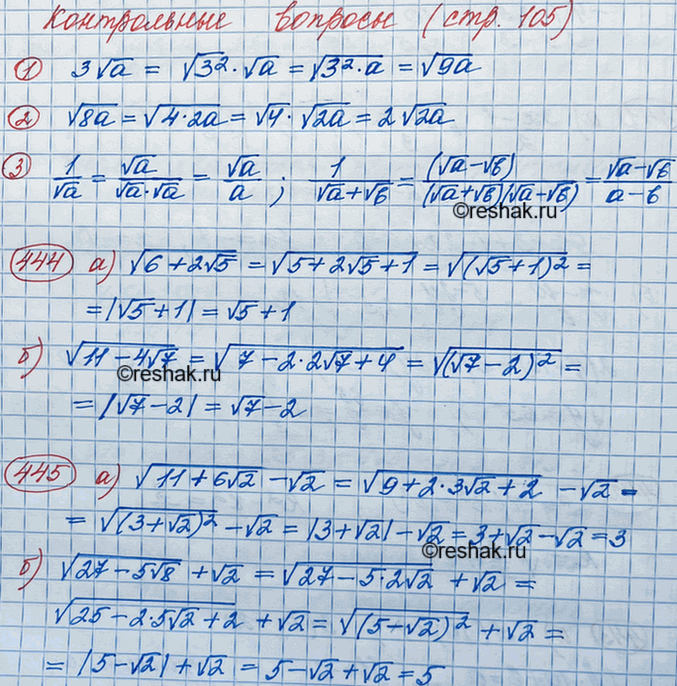 Контрольные вопросы (стр. 105)
① 3√a = √3² · √a = √(3² · a) = √(9a)
② √(8a) = √(4 · 2a) = √4 · √(2a) = 2√(2a)
③ 1/√a = √a/(√a · √a) = √a/a ; 1/(√a + √b) = (√a − √b)/((√a + √b)(√a − √b)) = (√a − √b)/(a − b)
©reshak.ru
444 а) √(6 + 2√5) = √(5 + 2√5 + 1) = √((√5 + 1)²) =
= |√5 + 1| = √5 + 1
б) √(11 − 4√7) = √(7 − 2 · 2√7 + 4) = √((√7 − 2)²) =
©reshak.ru
= |√7 − 2| = √7 − 2
445 а) √(11 + 6√2) − √2 = √(9 + 2 · 3√2 + 2) − √2 =
= √((3 + √2)²) − √2 = |3 + √2| − √2 = 3 + √2 − √2 = 3
©reshak.ru
б) √(27 − 5√8) + √2 = √(27 − 5 · 2√2) + √2 =
√(25 − 2 · 5√2 + 2) + √2 = √((5 − √2)²) + √2 =
= |5 − √2| + √2 = 5 − √2 + √2 = 5